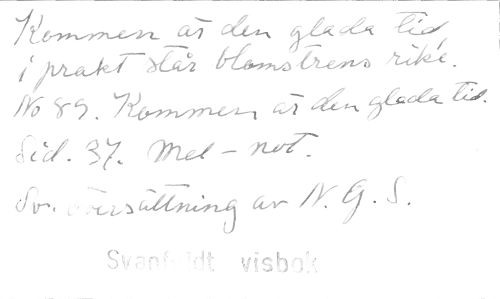 Kommen är den glada tid
i prakt står blomstrens rike.
No 89. Kommen är den glada tid.
Sid. 37. Mel-not.
Sv. översättning av N. G. S.
visbok